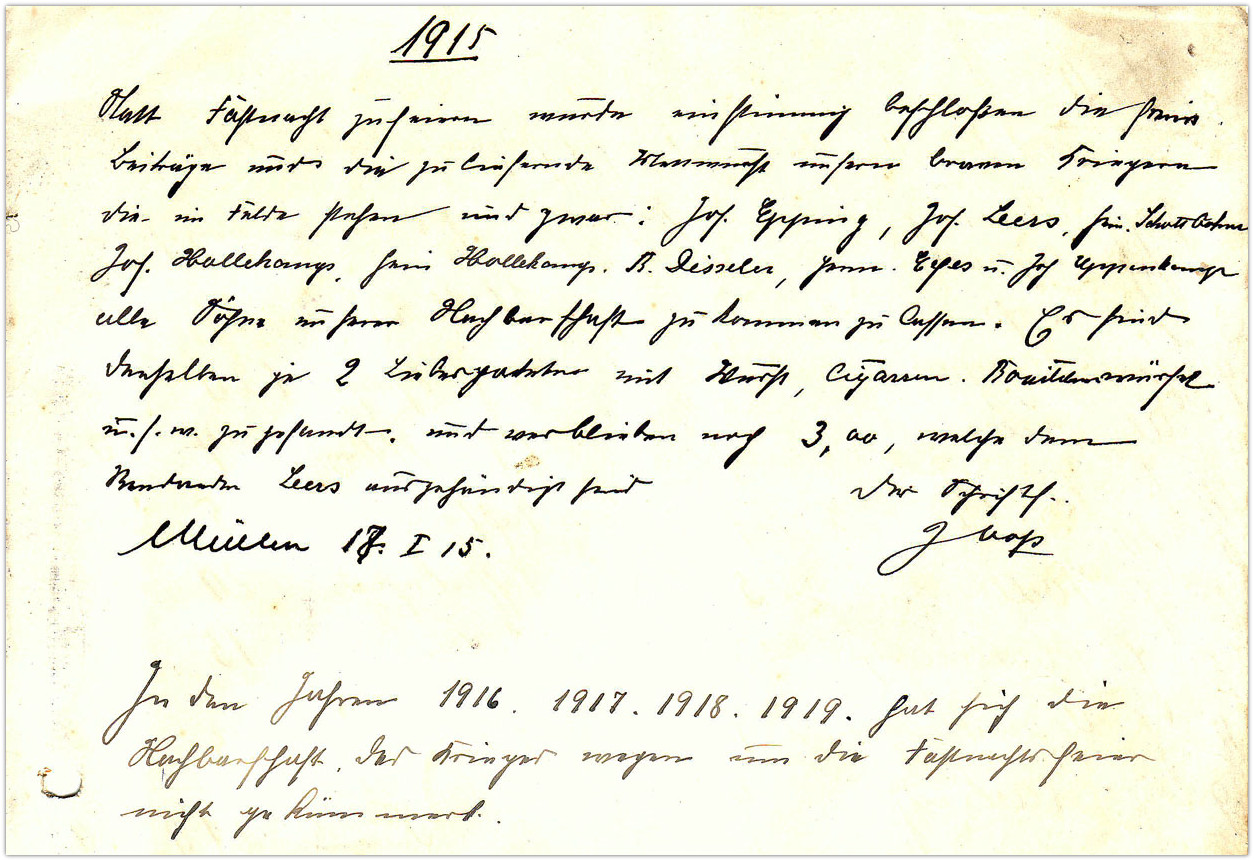 1915
Statt Fastnacht zu feiern wurde einstimmig beschloßen die
Beiträge und die zu liefernde Mettwurst unseren braven Kriegern
die im Felde stehen und zwar: Jos. Epping, Jos. Leers, Hein. Schottbohm
Jos. Hollekamp, Hein Hollekamp. B. Disseler, Herm. u. Joh Eppenkamp
alle Söhne unserer Nachbarschaft zu kommen zu lassen. Es sind
denselben je 2 Liebespakete mit Wurst, Cigarren. Bouillonwürfel
u.s.w. zu gesandt. und verblieben noch 3,00, welche dem
Rendanten Leers ausgehändigt sind
Der Schriftf..
17. I 15.
J
In den Jahren 1916. 1917. 1918. 1919. hat sich die
Nachbarschaft, des Krieges wegen um die Fastnachtsfeier
nicht gekümmert.